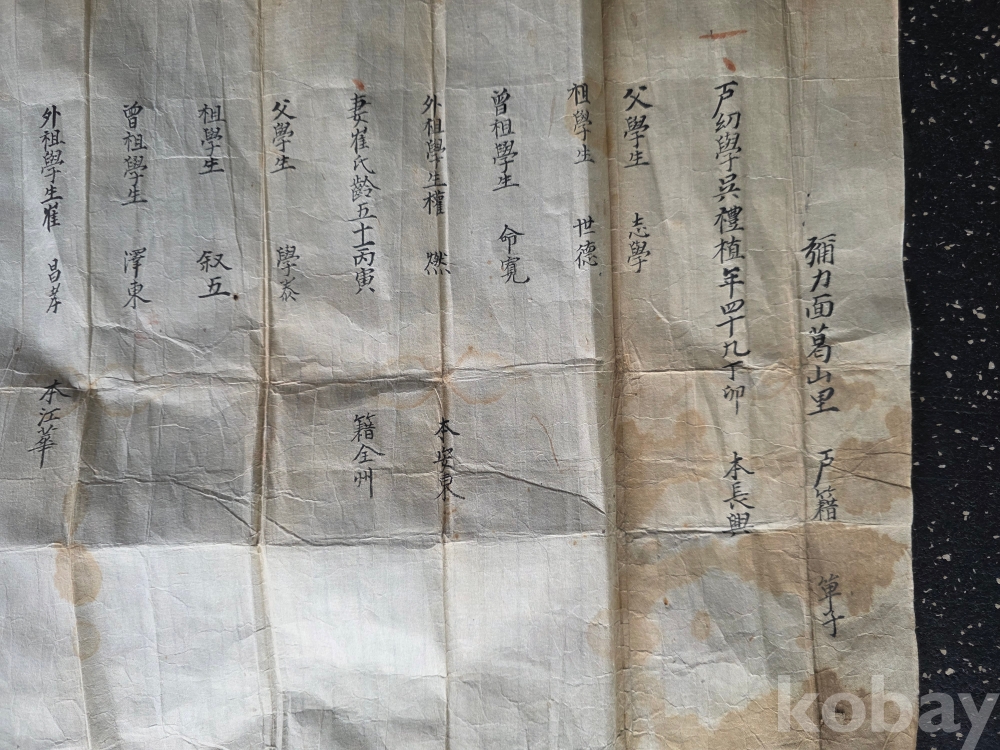 彌力面葛山里 戶籍 單子
一
戶幼學吳禮植年四十九丁卯 本長興
父學生 志學
祖學生 世德
曾祖學生 命寬
外祖學生權 燃 本安東
妻崔氏齡五十丙寅 籍全州
父學生 學泰
祖學生 叙五
曾祖學生 澤東
外祖學生崔 昌孝 本江華
kobay